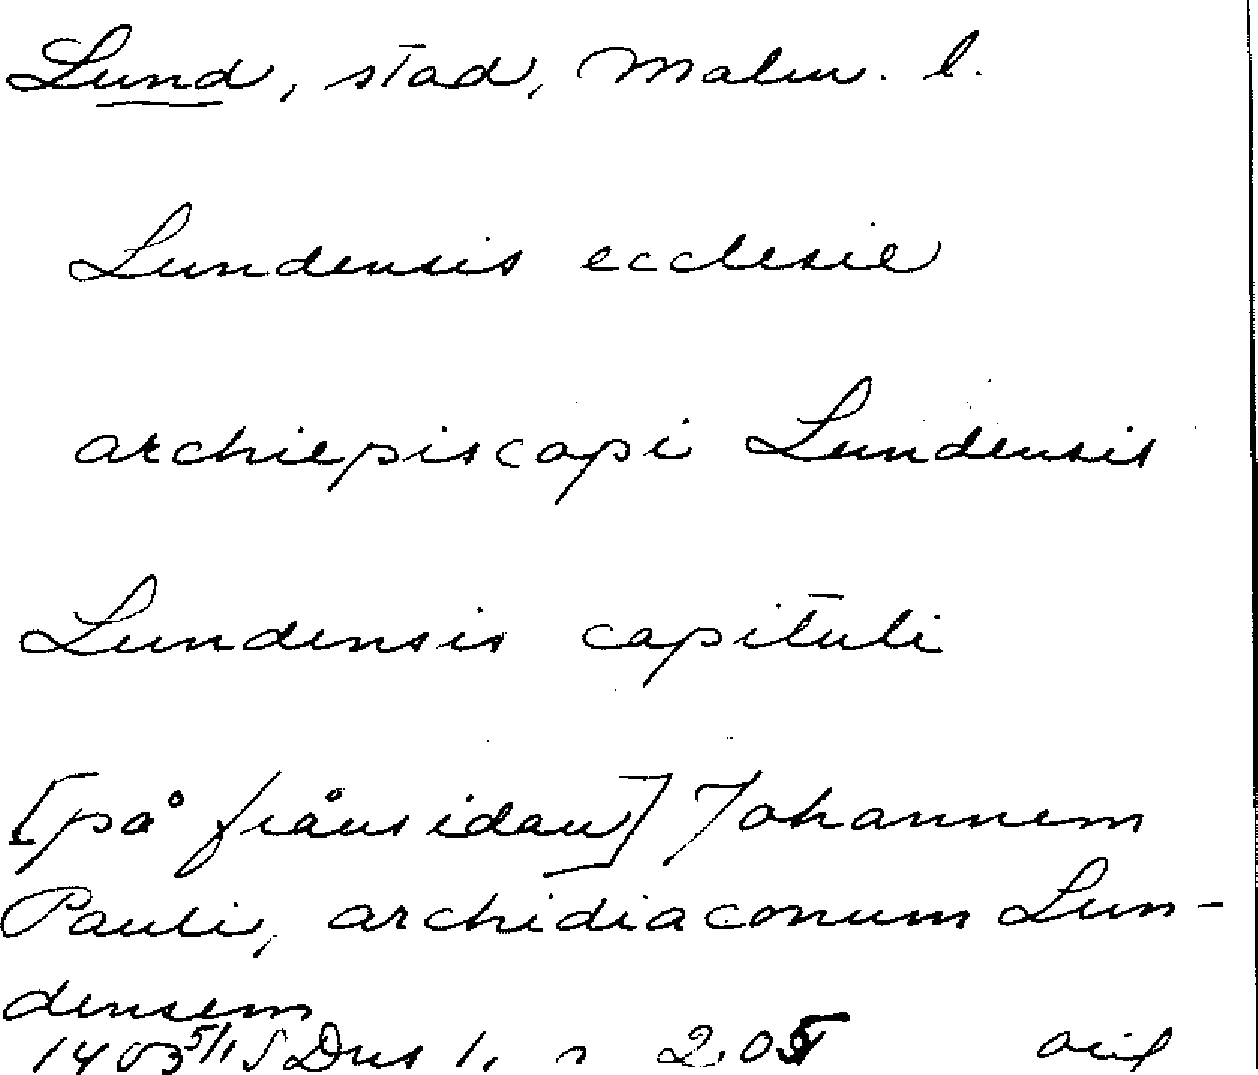 Lund, stad, Malm. l.
Lundensis ecclesie
archiepiscopi Lundensis
Lundensis capituli
[på frånsidan] Johannem
Pauli, archidiaconum Lun-
densem
1403 5/1 SDns 1, n 205 orig